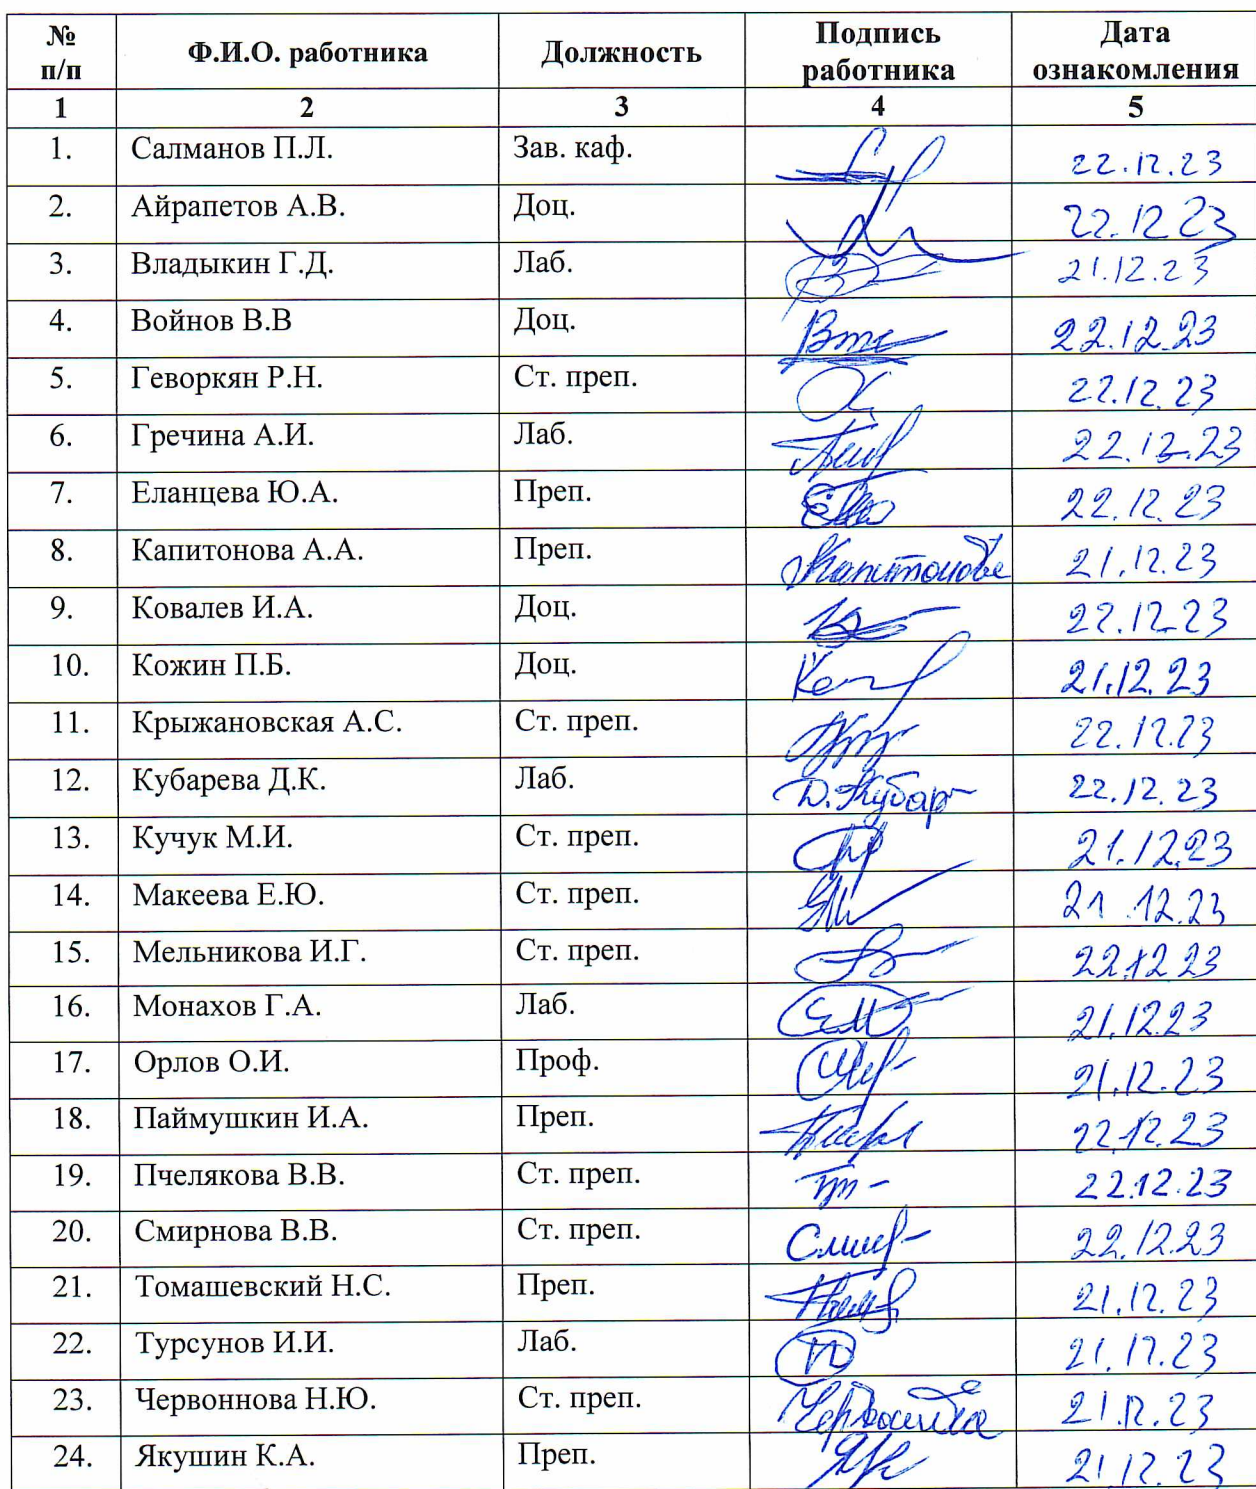 № п/п Ф.И.О. работника Должность Подпись работника Дата ознакомления
1 2 3 4 5
1. Салманов П.Л. Зав. каф. 22.12.23
2. Айрапетов А.В. Доц. 22.12 23
3. Владыкин Г.Д. Лаб. 21.12.23
4. Войнов В.В Доц. 22.12.23
5. Геворкян Р.Н. Ст. преп. 22.12.23
6. Гречина А.И. Лаб. 22.12.23
7. Еланцева Ю.А. Преп. 22.12.23
8. Капитонова А.А. Преп. Капитонова 21.12.23
9. Ковалев И.А. Доц. 22.12.23
10. Кожин П.Б. Доц. 21.12.23
11. Крыжановская А.С. Ст. преп. 22.12.23
12. Кубарева Д.К. Лаб. Д.Кубар 22.12.23
13. Кучук М.И. Ст. преп. 21.12.23
14. Макеева Е.Ю. Ст. преп. 21.12.23
15. Мельникова И.Г. Ст. преп. 22.12.23
16. Монахов Г.А. Лаб. 21.12.23
17. Орлов О.И. Проф. 21.12.23
18. Паймушкин И.А. Преп. 22.12.23
19. Пчелякова В.В. Ст. преп. 22.12.23
20. Смирнова В.В. Ст. преп. 22.12.23
21. Томашевский Н.С. Преп. 21.12.23
22. Турсунов И.И. Лаб. 21.12.23
23. Червоннова Н.Ю. Ст. преп. 21.12.23
24. Якушин К.А. Преп. 21.12.23